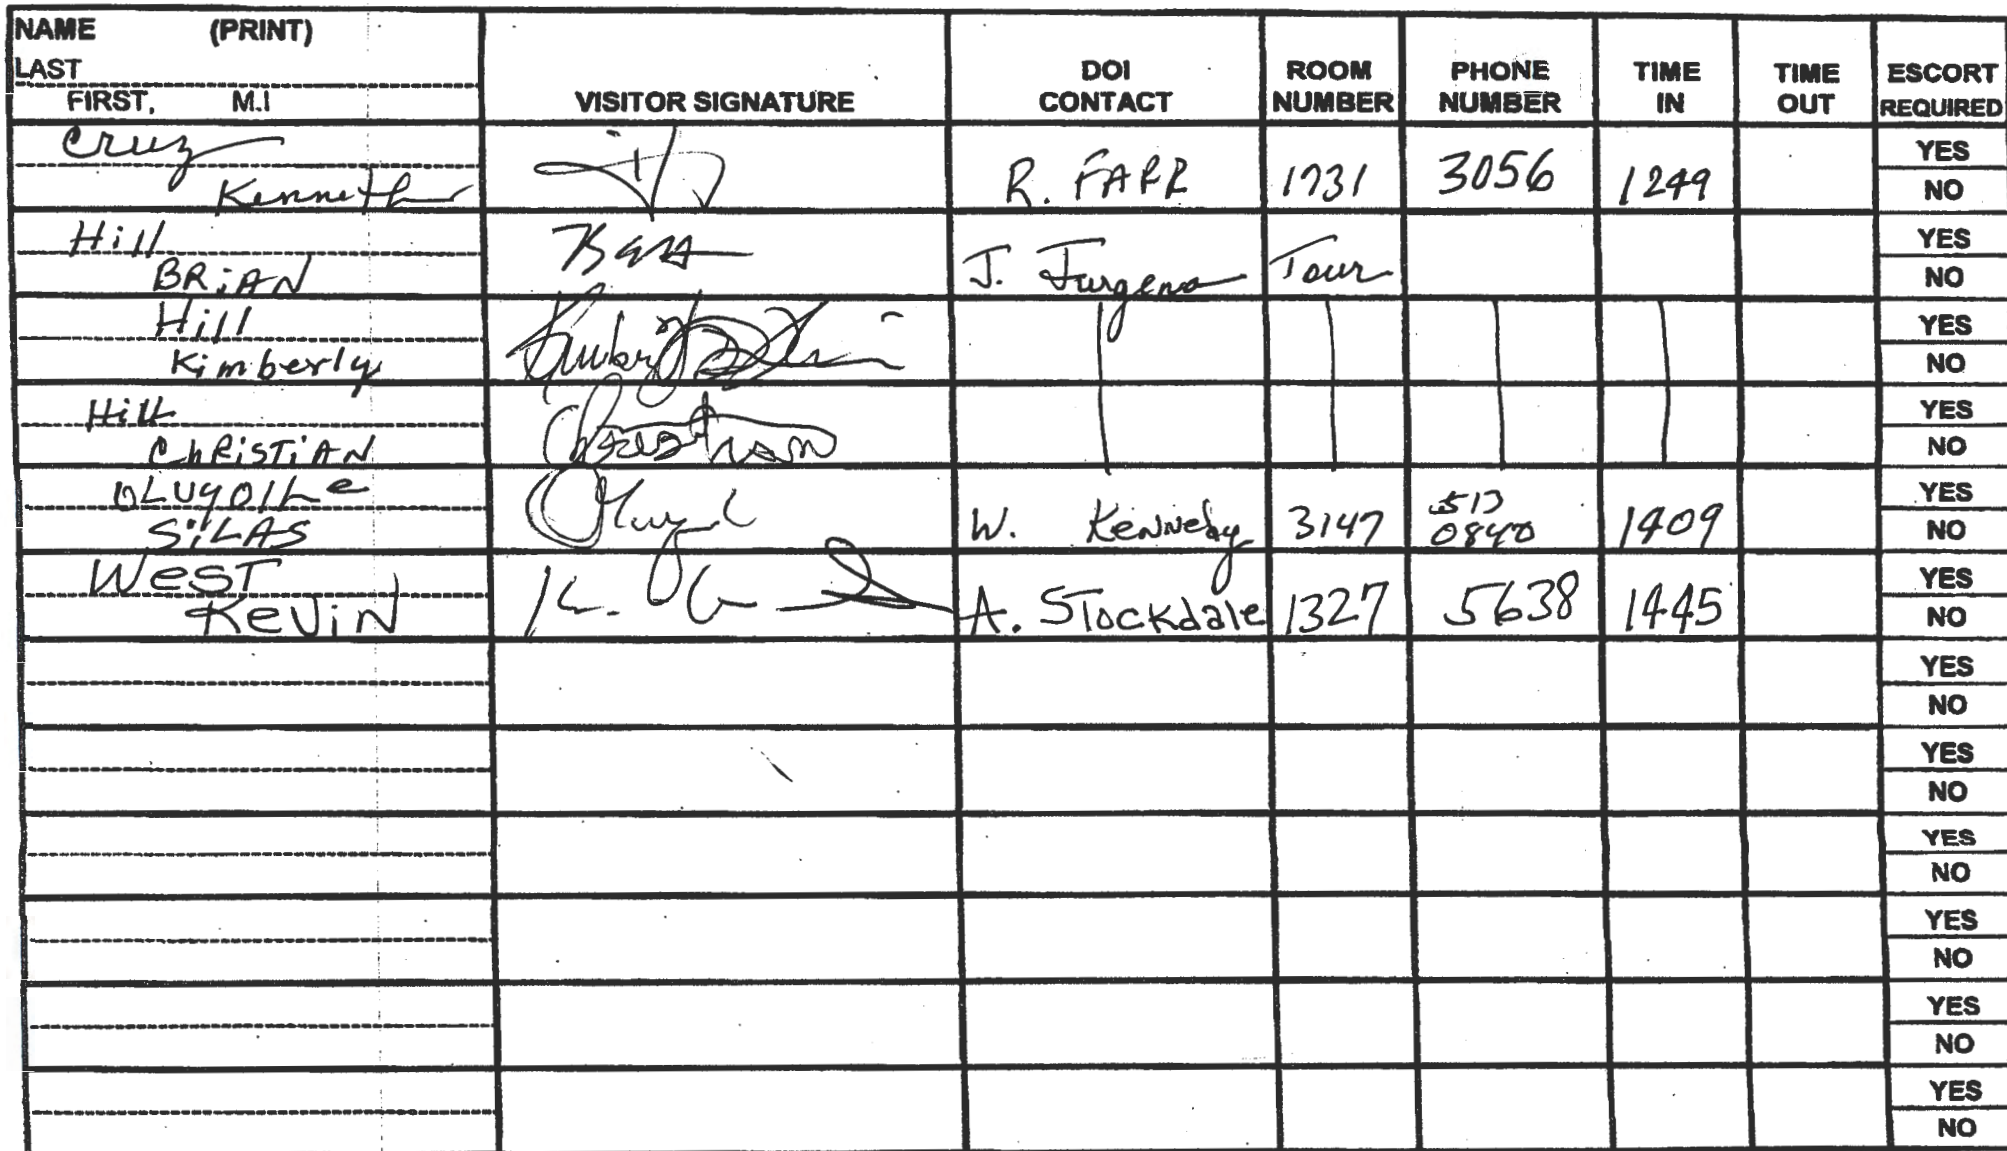 NAME (PRINT)
LAST
FIRST, M.I
VISITOR SIGNATURE
DOI CONTACT
ROOM NUMBER
PHONE NUMBER
TIME IN
TIME OUT
ESCORT REQUIRED
Cruz
Kenneth
R. FARR 1731 3056 1249
YES
NO
Hill
BRIAN
J. Jurgens Tour
YES
NO
Hill
Kimberly
YES
NO
Hill
CHRISTIAN
Christian
YES
NO
SILAS
W. Kennedy 3147 513 0840 1409
YES
NO
West
Kevin
A. Stockdale 1327 5638 1445
YES
NO
YES
NO
YES
NO
YES
NO
YES
NO
YES
NO
YES
NO